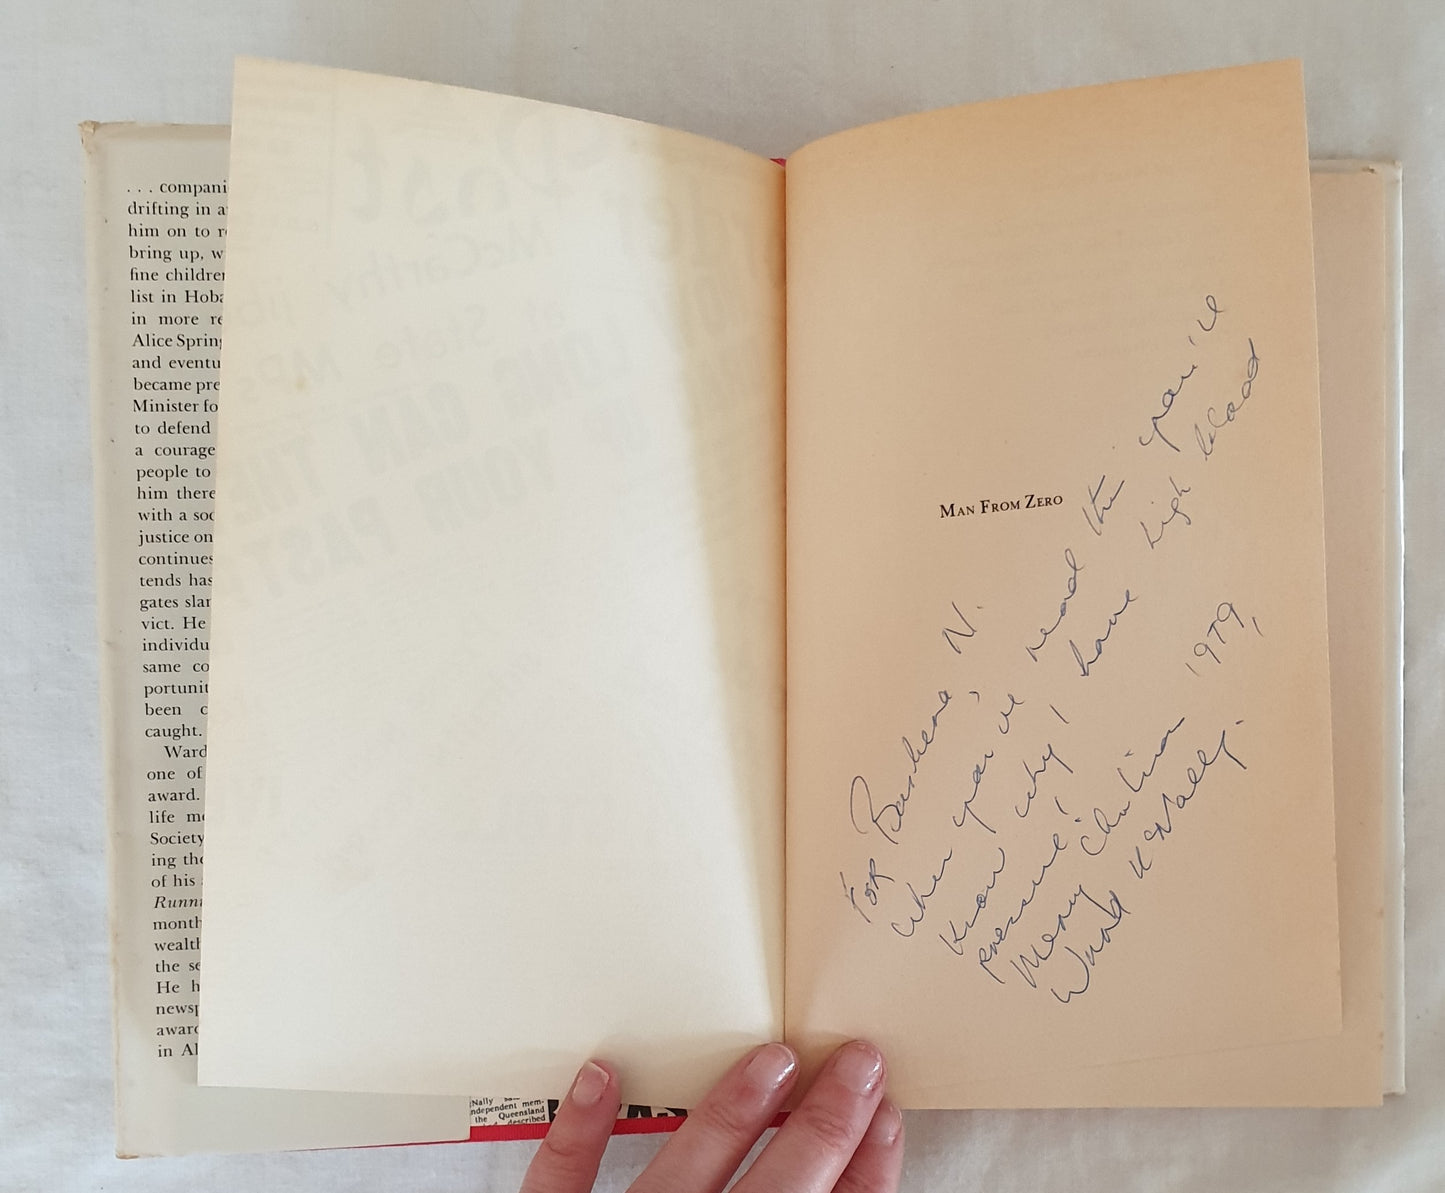 . . . compani
drifting in a
him on to r
bring up, w
fine childre
list in Hoba
in more re
Alice Spring
and eventu
became pre
Minister fo
to defend
a courage
people to
him there
with a soc
justice on
continues
tends has
gates slan
vict. He
individu
same co
portunit
been c
caught.
Ward
one of
award.
life me
Society
ing the
of his
Runni
month
wealth
the se
He h
newsp
award
in Al
Nally
ndependent mem-
the Queensland
described
MAN FROM ZERO
FOR Barbara N.
When you've read this you'll
know why I have high blood
pressure!
Merry Christmas 1979,
Ward McNally.